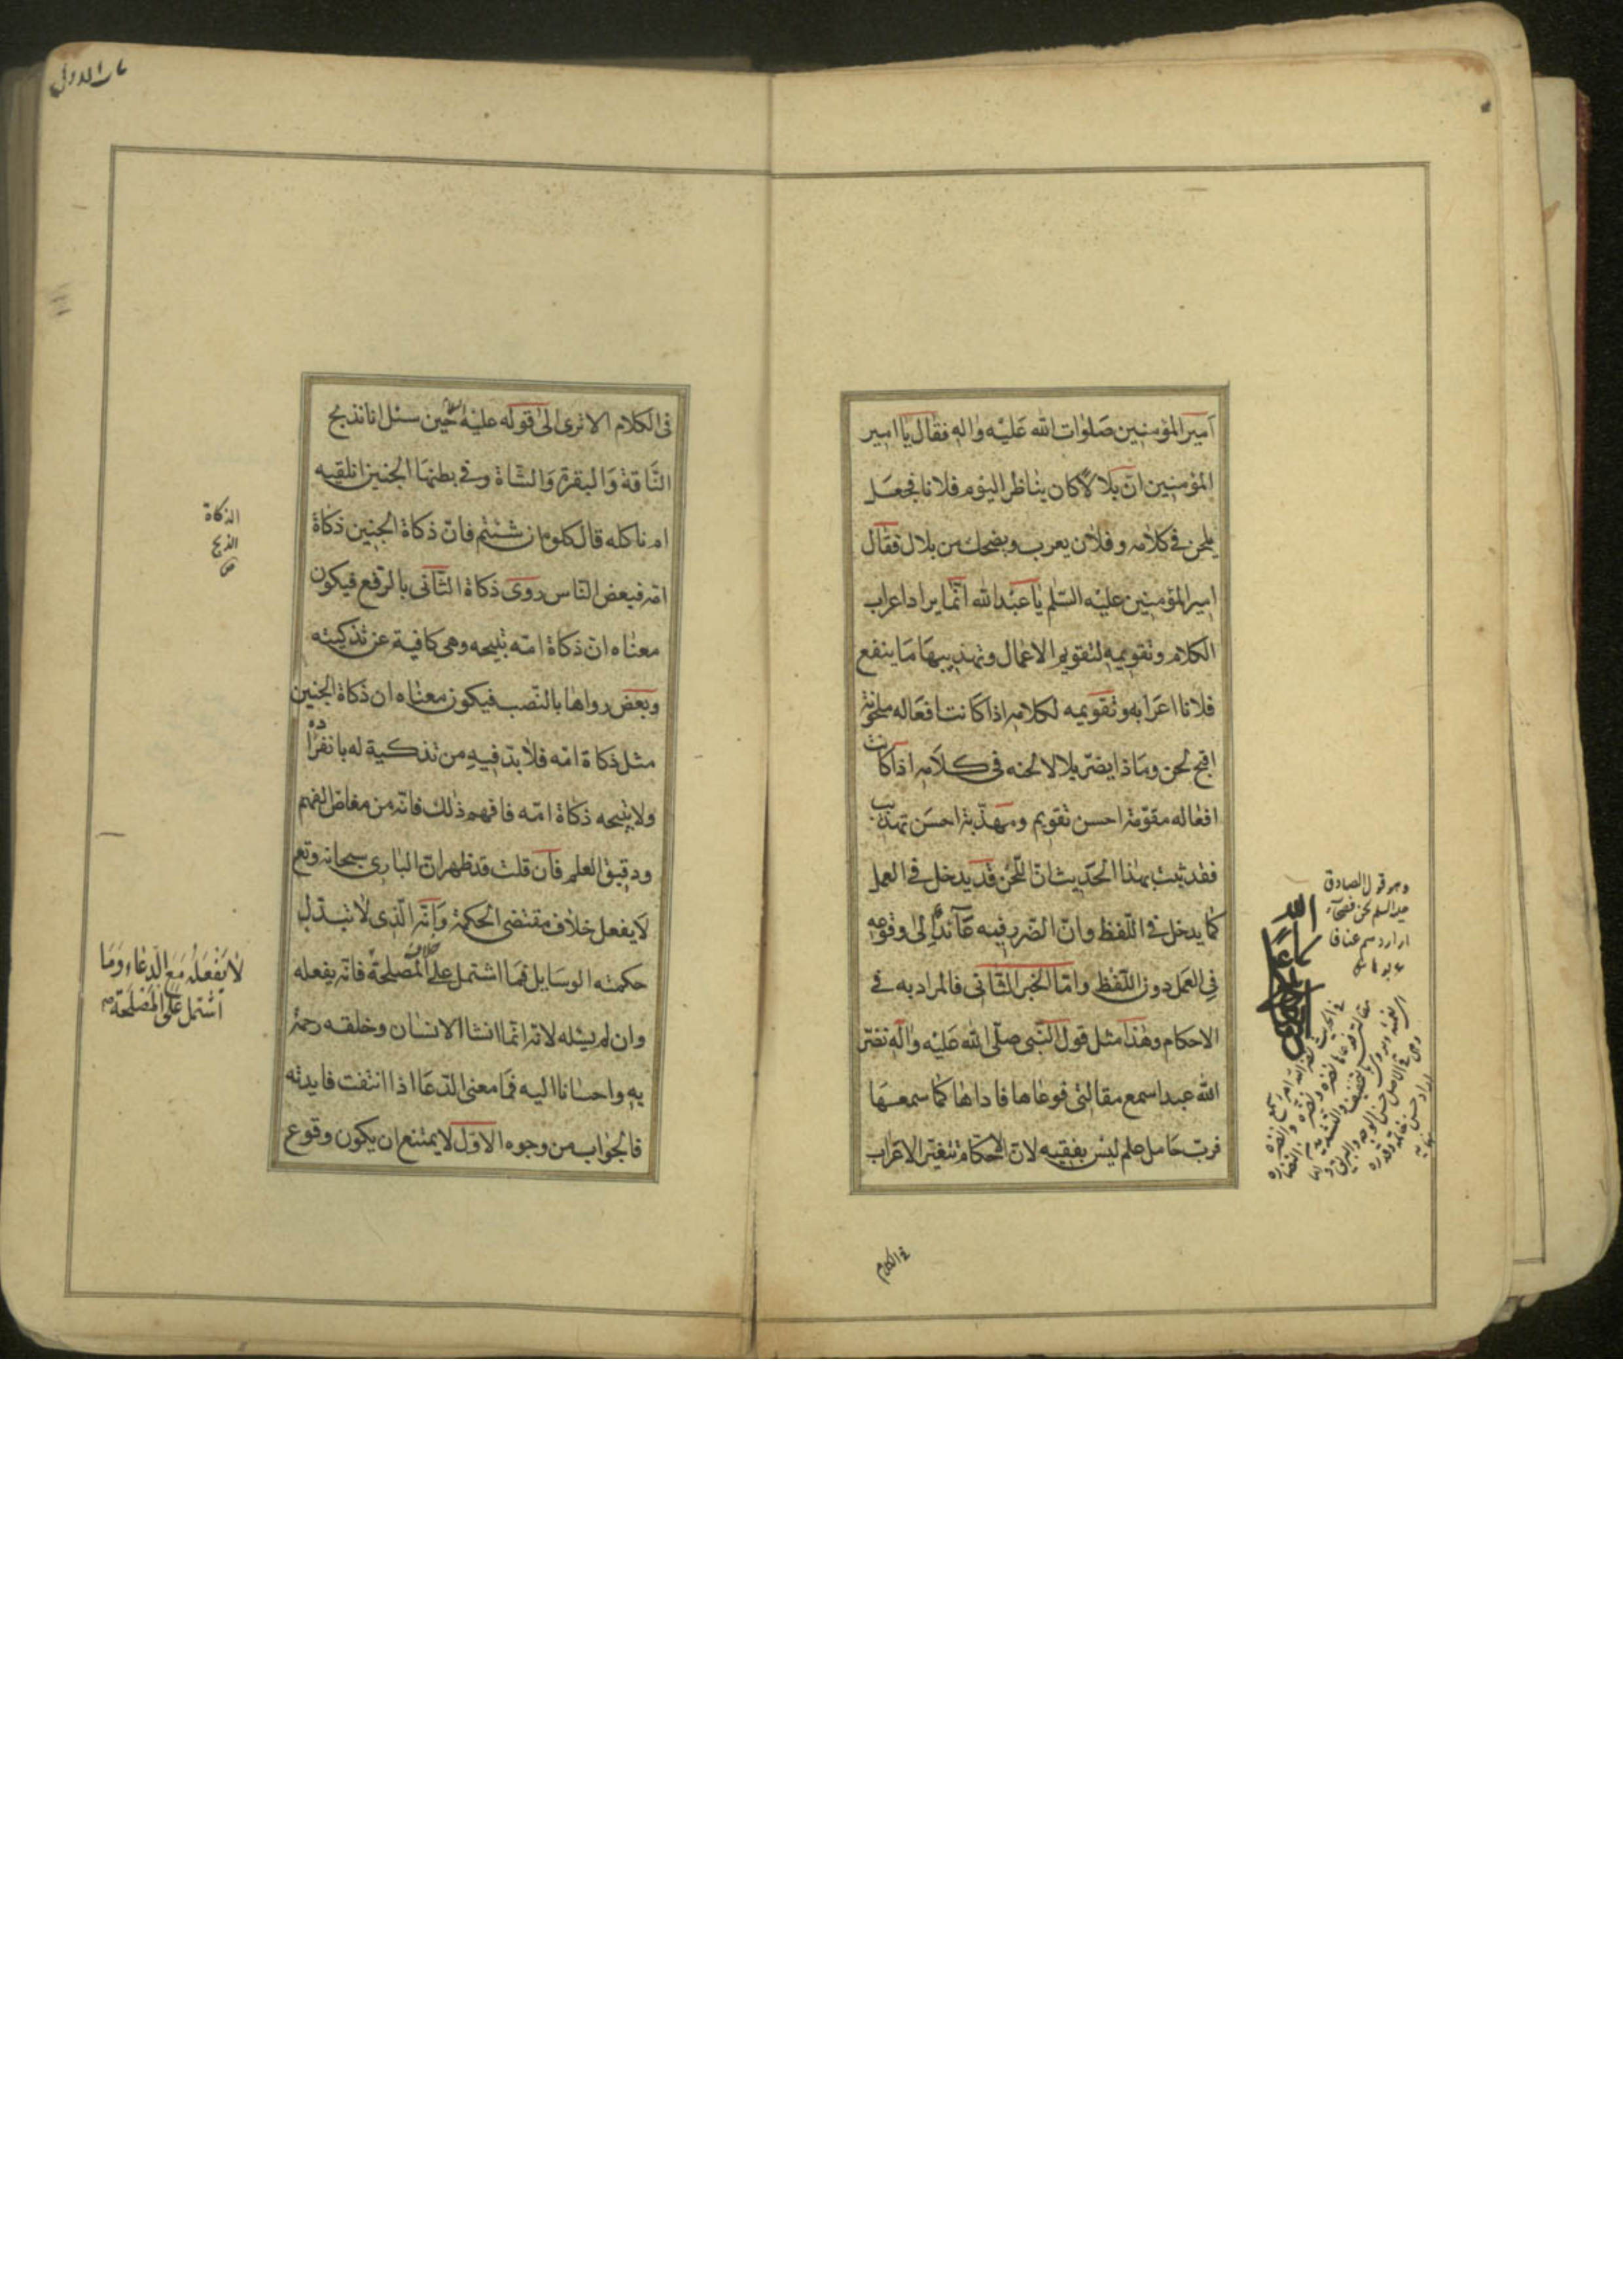 امير المؤمنين صلوات الله عليه واله فقال يا امير
المؤمنين انّ بلالاً كان يناظر اليوم فلانا فجعل
يلحن في كلامه وفلان يعرب ويضحك من بلال فقال
امير المؤمنين عليه السّلم يا عبد الله انّما يراد اعراب
الكلام وتقويمه لتقويم الاعمال وتهذيبها ما ينفع
فلانا اعرابه وتقويمه لكلامه اذا كانت افعاله ملحونة
اقبح لحن وماذا يضرّ بلالا لحنه في كلامه اذا كانت
افعاله مقوّمة احسن تقويم ومهذّبة احسن تهذيب
فقد ثبت بهذا الحديث انّ اللّحن قد يدخل في العمل
كما يدخل في اللّفظ وانّ الضّرر فيه عائد الى وقوعه
في العمل دون اللّفظ وامّا الخبر الثّاني فالمراد به في
الاحكام وهذا مثل قول النّبي صلّى الله عليه واله نضّر
الله عبدا سمع مقالتي فوعاها فاداها كما سمعها
فربّ حامل علم ليس بفقيه لانّ الاحكام تتغيّر الاعراب
وهو قول الصادق
عليه السلم نحن فصحاء
في الكلام
في الكلام الا ترى الى قوله عليه السلام حين سئل انا نذبح
النّاقة والبقرة والشّاة وفي بطنها الجنين انلقيه
ام ناكله قال كلوه ان شئتم فانّ ذكاة الجنين ذكاة
امّه فبعض النّاس روى ذكاة الثّاني بالرّفع فيكون
معناه انّ ذكاة امّه تبيحه وهي كافية عن تذكيته
وبعض رواها بالنّصب فيكون معناه ان ذكاة الجنين
مثل ذكاة امّه فلا بدّ فيه من تذكية له بانفراده
ولا تبيحه ذكاة امّه فافهم ذلك فانّه من مغاض الفهم
ودقيق العلم فان قلت قد ظهر انّ الباري سبحانه وتعم
لا يفعل خلاف مقتضى الحكمة وانّه الّذي لا تبدّل
حكمته الوسايل فما اشتمل على خلاف المصلحة فانّه يفعله
وان لم يسئله لانّه انّما انشا الانسان وخلقه رحمة
به واحسانا اليه فما معنى الدّعا اذا انتفت فايدته
فالجواب من وجوه الاوّل لا يمتنع ان يكون وقوع
الذكاة
الذبح
ص
لا يفعله مع الدّعاء وما
اشتمل على المصلحة صح